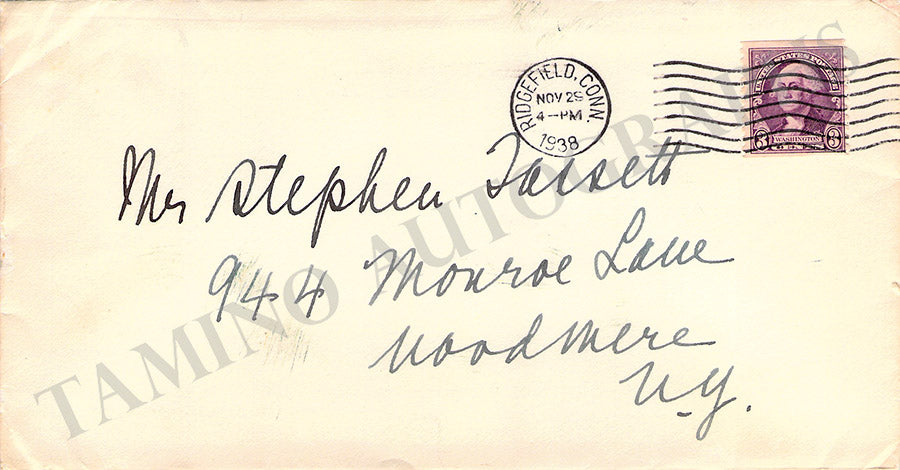 RIDGEFIELD, CONN.
NOV 28
4-PM
1938
UNITED STATES POSTAGE
3 WASHINGTON 3
Mr Stephen Fassett
944 Monroe Lane
Woodmere
N.Y.
TAMINO AUTOGRAPHS